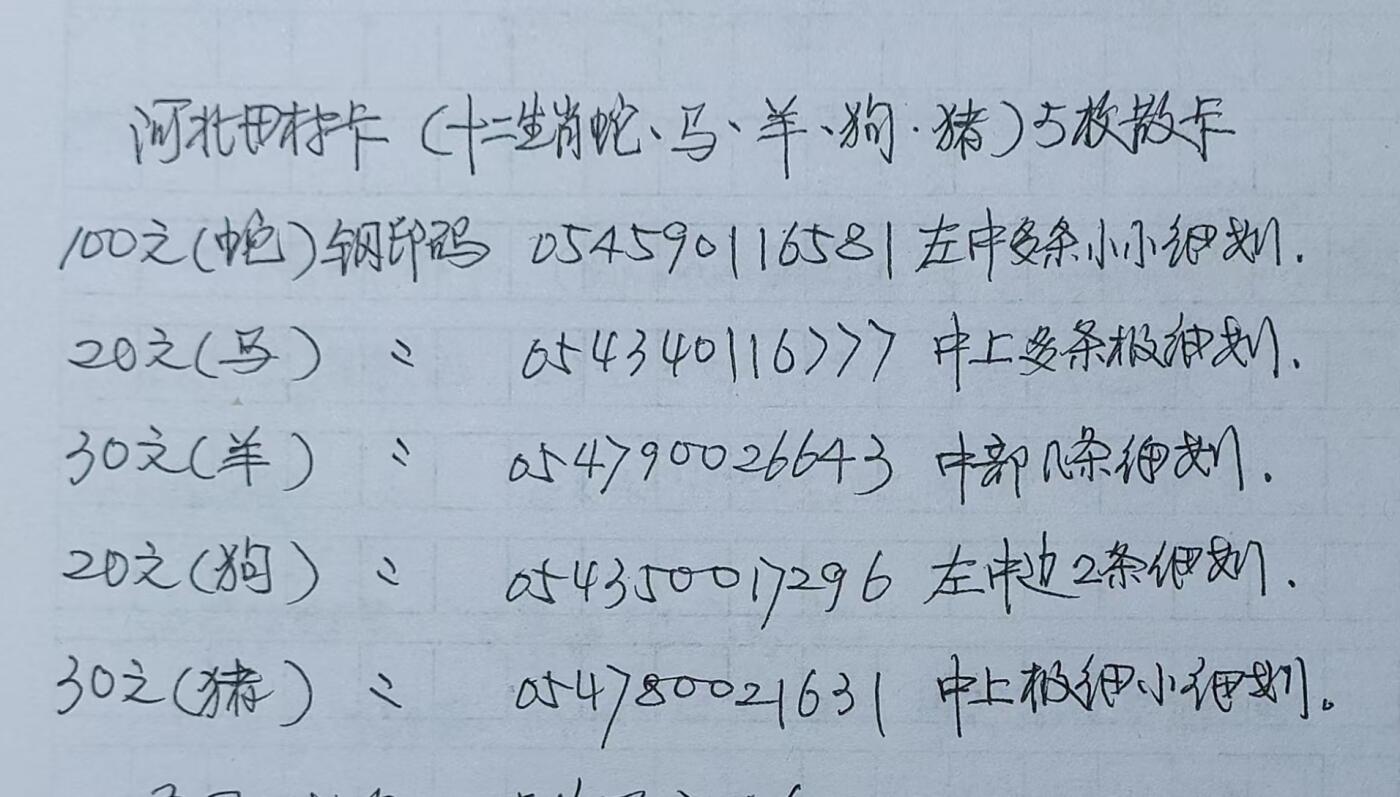 河北田村卡（十二生肖蛇、马、羊、狗·猪）5枚散卡
100元(蛇)钢印码 054590116581 左中多条小小细划.
20元(马) 〃 054340116777 中上多条极细划.
30元(羊) 〃 054790026643 中部几条细划.
20元(狗) 〃 054350017296 左中边2条细划.
30元(猪) 〃 054780021631 中上极细小细划。